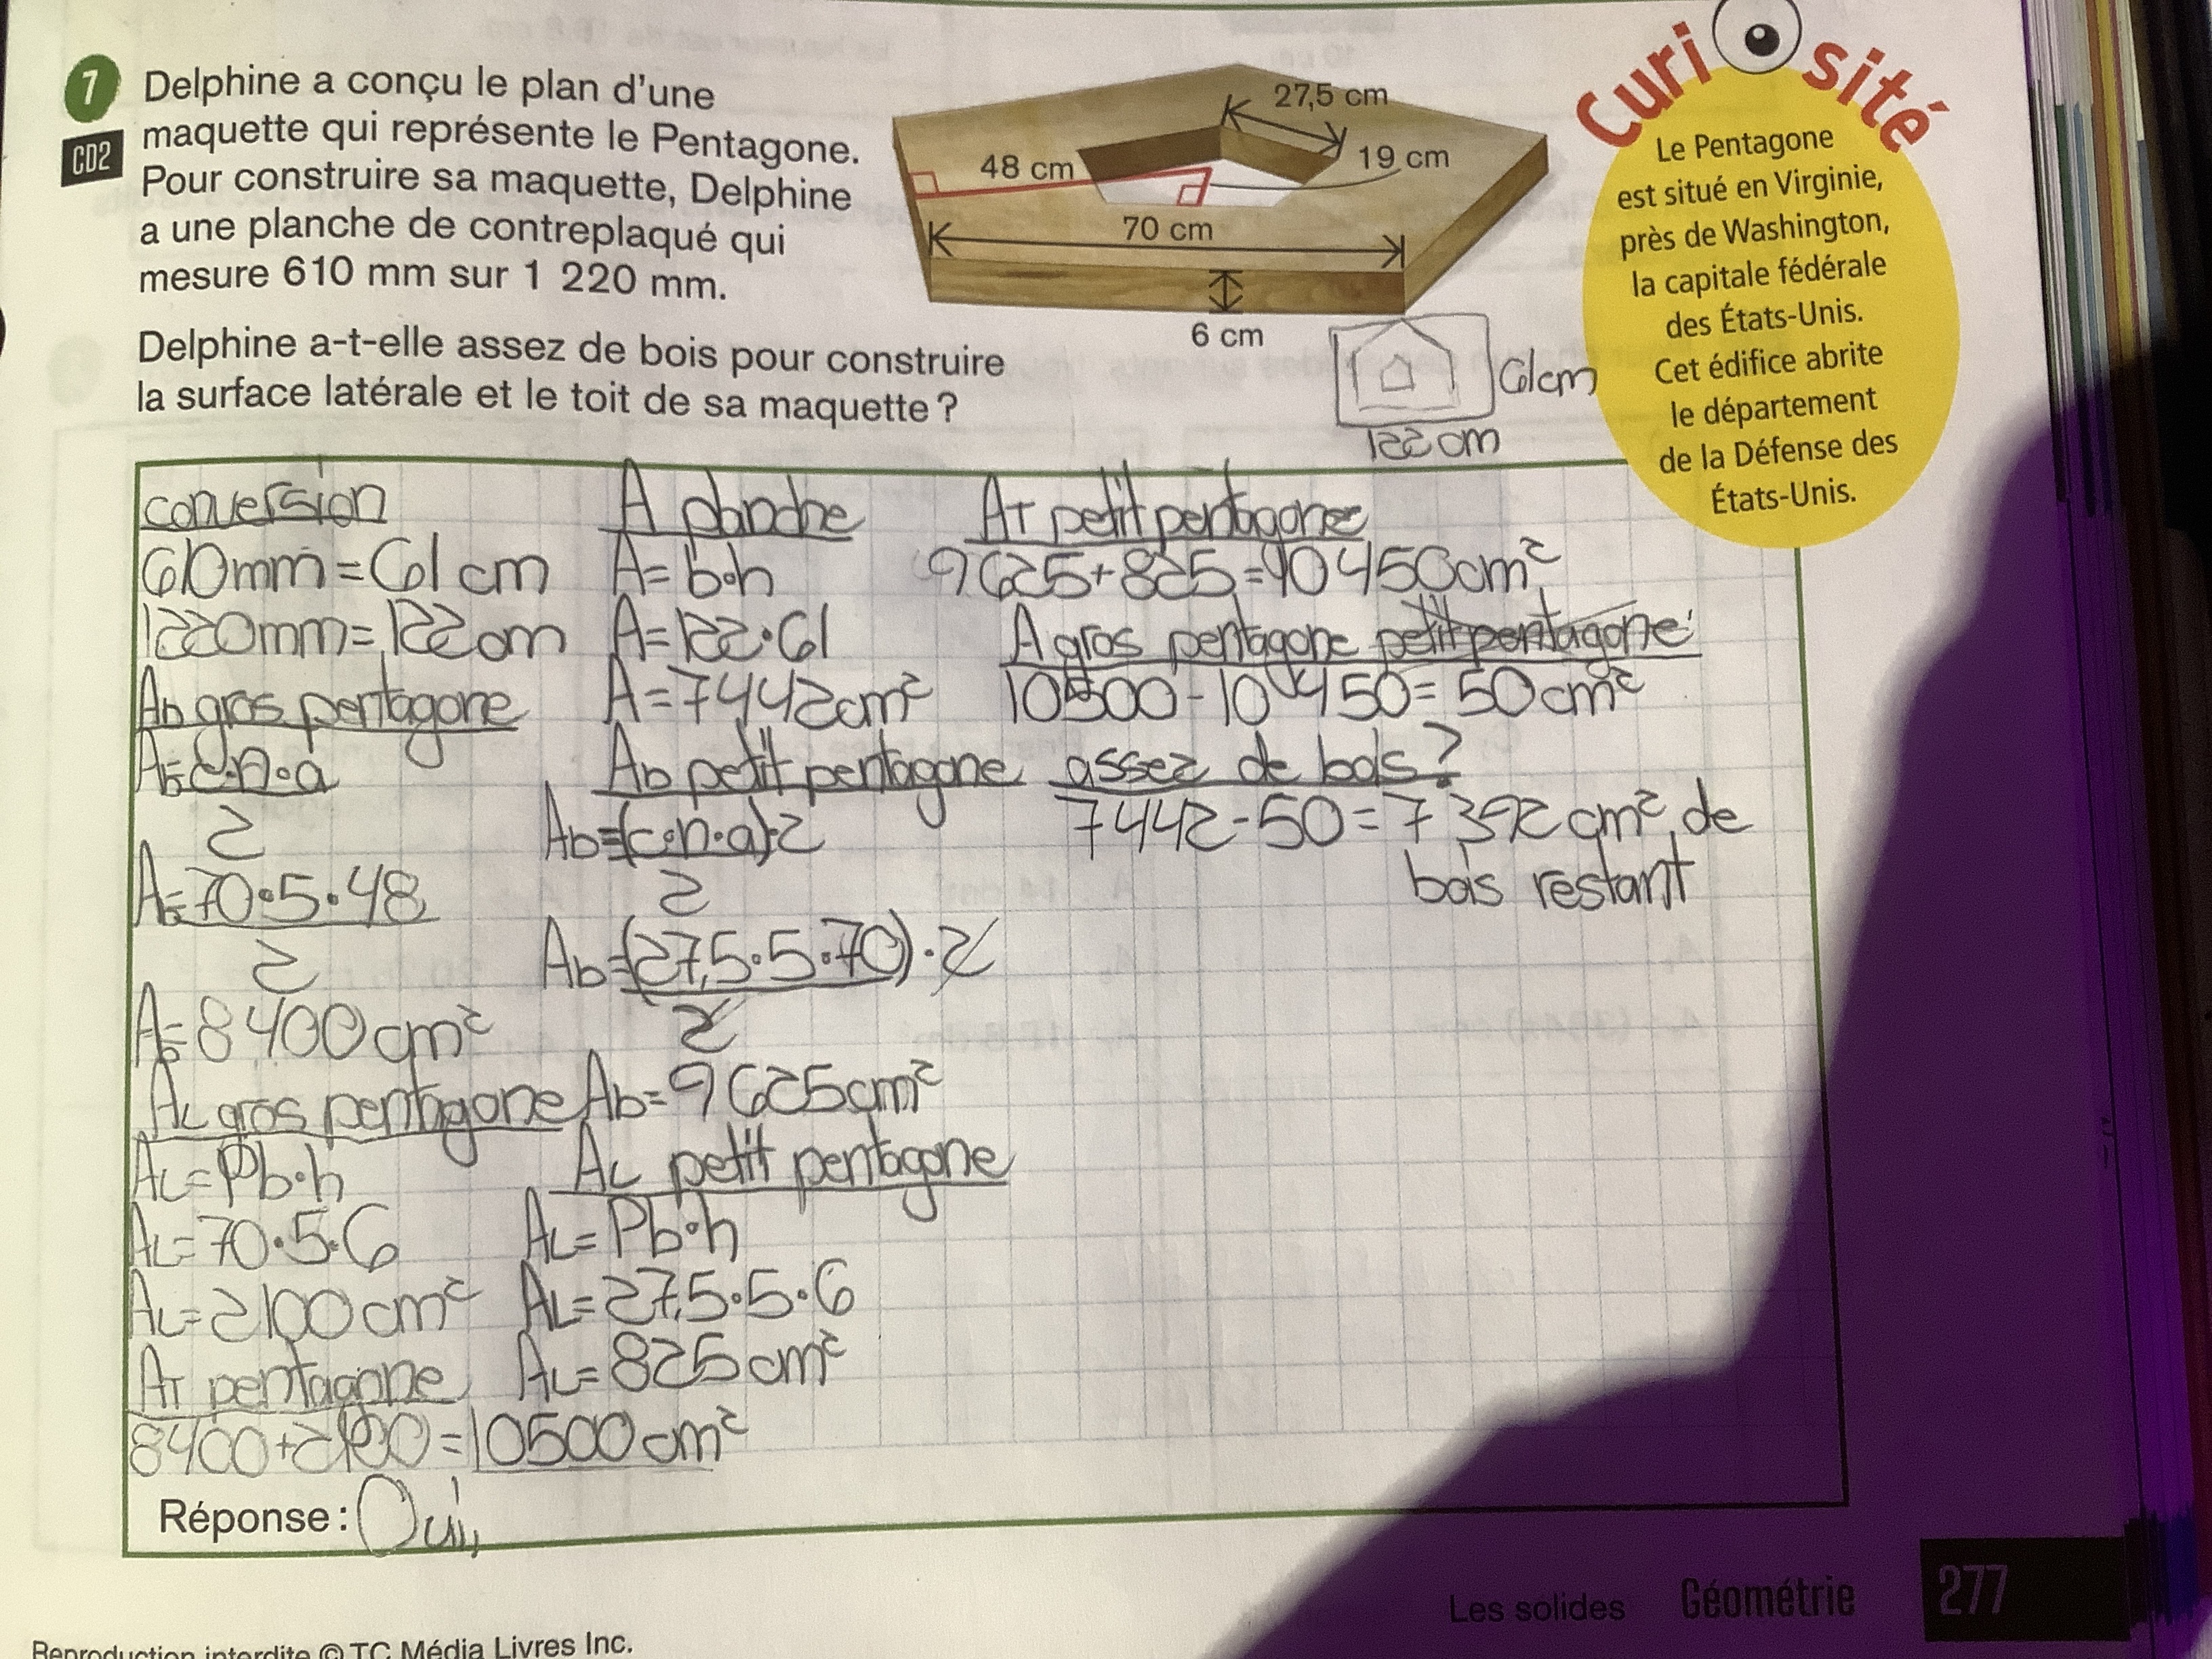 7
CD2
Delphine a conçu le plan d'une
maquette qui représente le Pentagone.
Pour construire sa maquette, Delphine
a une planche de contreplaqué qui
mesure 610 mm sur 1 220 mm.
Delphine a-t-elle assez de bois pour construire
la surface latérale et le toit de sa maquette ?
27,5 cm
48 cm
19 cm
70 cm
6 cm
61cm
122cm
Curiosité
Le Pentagone
est situé en Virginie,
près de Washington,
la capitale fédérale
des États-Unis.
Cet édifice abrite
le département
de la Défense des
États-Unis.
conversion
610mm=61cm
1220mm=122cm
Ab gros pentagone
Ab=c·n·a
2
Ab=70·5·48
2
Ab=8400cm²
AL gros pentagone
AL=Pb·h
AL=70·5·6
AL=2100cm²
AT pentagone
8400+2100=10500cm²
A planche
A=b·h
A=122·61
A=7442cm²
Ab petit pentagone
Ab=(c·n·a)·2
2
Ab=(27,5·5·70)·2
2
Ab=9625cm²
AL petit pentagone
AL=Pb·h
AL=27,5·5·6
AL=825cm²
AT petit pentagone
9625+825=10450cm²
A gros pentagone petit pentagone
10500-10450=50cm²
assez de bois?
7442-50=7392cm² de
bois restant
Réponse : Oui,
Les solides Géométrie 277
Reproduction interdite © TC Média Livres Inc.